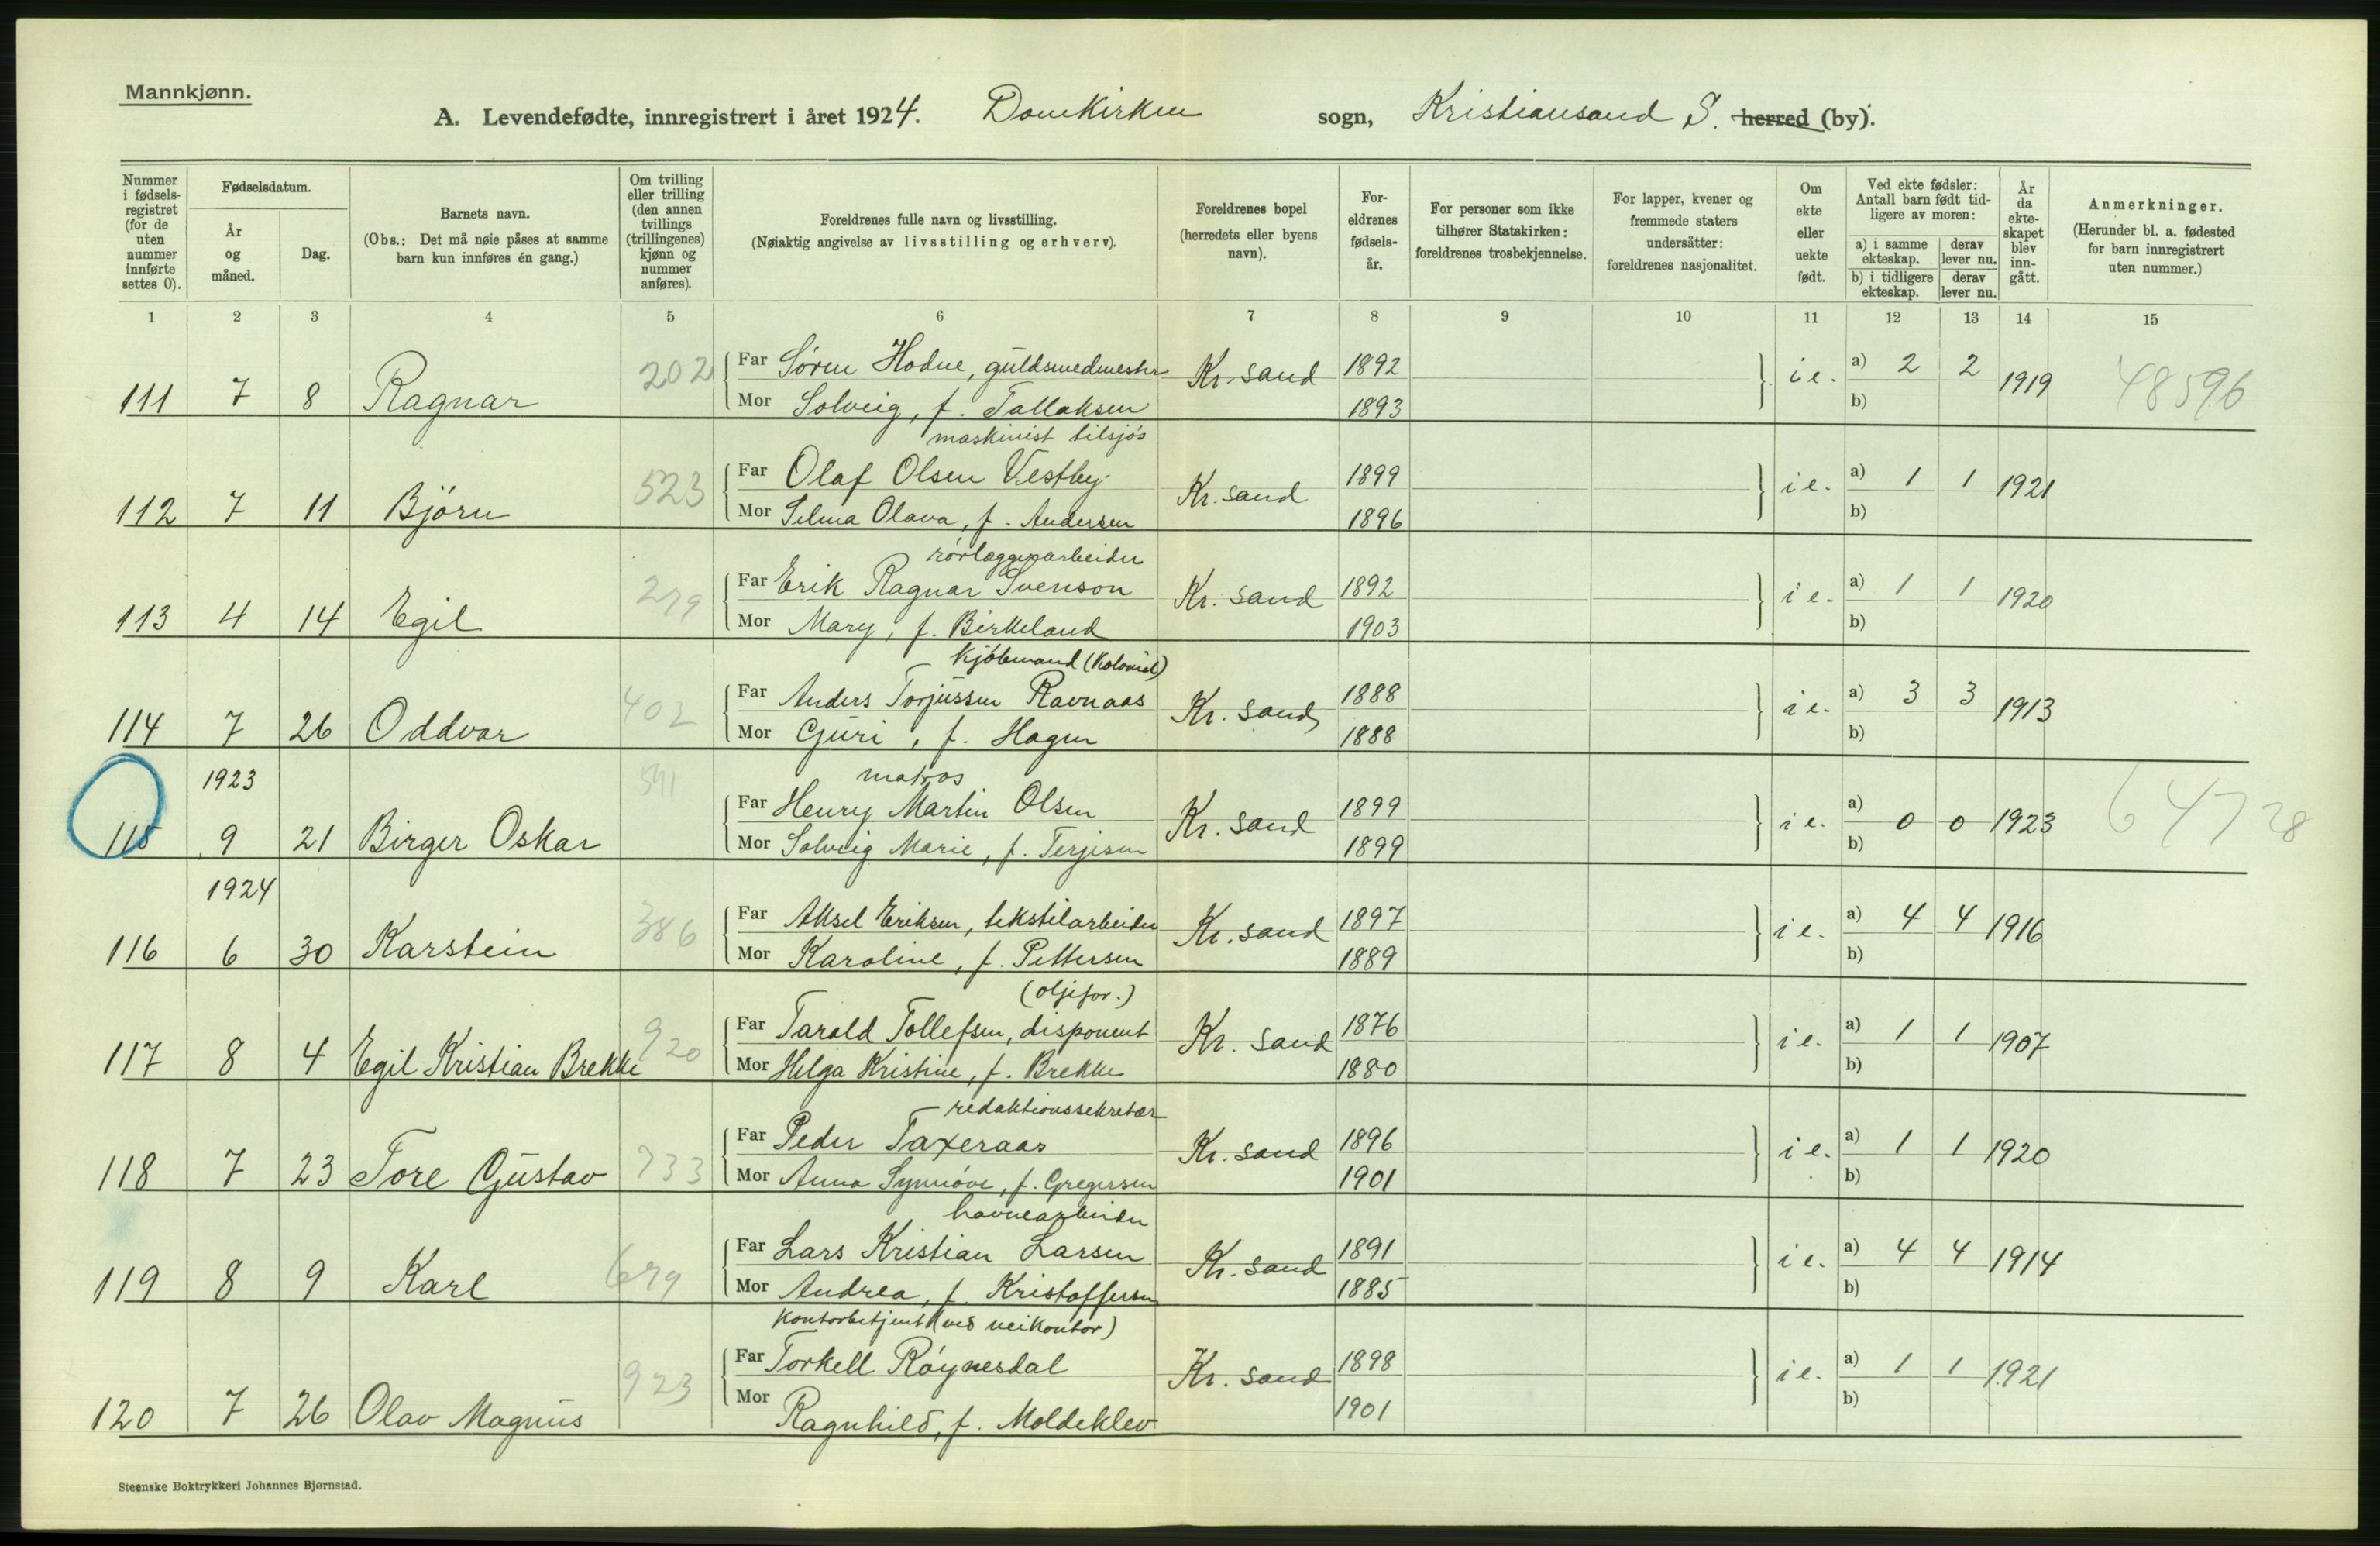 Mannkjønn.
A. Levendefødte, innregistrert i året 1924. Domkirken sogn, Kristiansand S. herred (by).
Nummer i fødselsregistret (for de uten nummer innførte settes 0).
Fødselsdatum.
År og måned.
Dag.
Barnets navn.
(Obs.: Det må nøie påses at samme barn kun innføres én gang.)
Om tvilling eller trilling (den annen tvillings (trillingenes) kjønn og nummer anføres).
Foreldrenes fulle navn og livsstilling.
(Nøiaktig angivelse av livsstilling og erhverv).
Foreldrenes bopel (herredets eller byens navn).
Foreldrenes fødselsår.
For personer som ikke tilhører Statskirken: foreldrenes trosbekjennelse.
For lapper, kvener og fremmede staters undersåtter: foreldrenes nasjonalitet.
Om ekte eller uekte født.
Ved ekte fødsler: Antall barn født tidligere av moren:
a) i samme ekteskap. derav lever nu.
b) i tidligere ekteskap. derav lever nu.
År da ekteskapet blev inngått.
Anmerkninger.
(Herunder bl. a. fødested for barn innregistrert uten nummer.)
1 2 3 4 5 6 7 8 9 10 11 12 13 14 15
111 7 8 Ragnar 202 Far Søren Hodne, guldsmedmester Kr. sand 1892 i e. a) 2 2 1919 48596
Mor Solveig, f. Tallaksen 1893 b)
maskinist tilsjøs
112 7 11 Bjørn 523 Far Olaf Olsen Vestby Kr. sand 1899 i e. a) 1 1 1921
Mor Selma Olava, f. Andersen 1896 b)
rørlæggerarbeider
113 4 14 Egil 279 Far Erik Ragnar Svenson Kr. sand 1892 i e. a) 1 1 1920
Mor Mary, f. Birkeland 1903 b)
kjøbmand (kolonial)
114 7 26 Oddvar 402 Far Anders Torjussen Ravnaas Kr. sand 1888 i e. a) 3 3 1913
Mor Guri, f. Hagen 1888 b)
1923 541 matros
115 9 21 Birger Oskar Far Henry Martin Olsen Kr. sand 1899 i e. a) 0 0 1923 64728
Mor Solveig Marie, f. Terjesen 1899 b)
1924
116 6 30 Karstein 386 Far Aksel Eriksen, tekstilarbeider Kr. sand 1897 i e. a) 4 4 1916
Mor Karoline, f. Pettersen 1889 b)
(oljefor.)
117 8 4 Egil Kristian Brekke 920 Far Tarald Tollefsen, disponent Kr. sand 1876 i e. a) 1 1 1907
Mor Helga Kristine, f. Brekke 1880 b)
redaktionssekretær
118 7 23 Tore Gustav 733 Far Peder Taxeraas Kr. sand 1896 i e. a) 1 1 1920
Mor Anna Synnøve, f. Gregersen 1901 b)
havnearbeider
119 8 9 Karl 679 Far Lars Kristian Larsen Kr. sand 1891 i e. a) 4 4 1914
Mor Andrea, f. Kristoffersen 1885 b)
kontorbetjent (ved veikontor)
120 7 26 Olav Magnus 923 Far Torkell Røynesdal Kr. sand 1898 i e. a) 1 1 1921
Mor Ragnhild, f. Moldeklev 1901 b)
Steenske Boktrykkeri Johannes Bjørnstad.